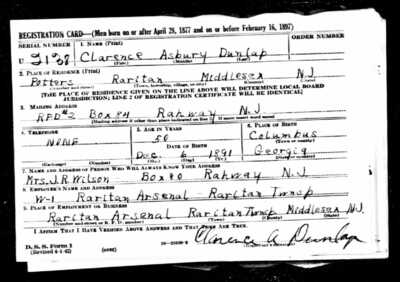 REGISTRATION CARD—(Men born on or after April 28, 1877 and on or before February 16, 1897)
SERIAL NUMBER 1. NAME (Print) ORDER NUMBER
U Clarence Asbury Dunlap
(First) (Middle) (Last)
2. PLACE OF RESIDENCE (Print)
Potters Raritan Middlesex N.J.
(Number and street) (Town, township, village, or city) (County) (State)
[THE PLACE OF RESIDENCE GIVEN ON THE LINE ABOVE WILL DETERMINE LOCAL BOARD
JURISDICTION; LINE 2 OF REGISTRATION CERTIFICATE WILL BE IDENTICAL]
3. MAILING ADDRESS
RFD#2 Box 84 Rahway N.J.
[Mailing address if other than place indicated on line 2. If same insert word same]
4. TELEPHONE 5. AGE IN YEARS 6. PLACE OF BIRTH
NONE 50 Columbus
DATE OF BIRTH (Town or county)
Dec. 6 1891 Georgia
(Exchange) (Number) (Mo.) (Day) (Yr.) (State or country)
7. NAME AND ADDRESS OF PERSON WHO WILL ALWAYS KNOW YOUR ADDRESS
Mrs. J.R. Wilson Box 80 Rahway N.J.
8. EMPLOYER'S NAME AND ADDRESS
W-1 Raritan Arsenal - Raritan Twnsp
9. PLACE OF EMPLOYMENT OR BUSINESS
Raritan Arsenal Raritan Twnsp Middlesex N.J.
(Number and street or R. F. D. number) (Town) (County) (State)
I AFFIRM THAT I HAVE VERIFIED ABOVE ANSWERS AND THAT THEY ARE TRUE.
D. S. S. Form 1
(Revised 4-1-42) (over) Clarence A Dunlap